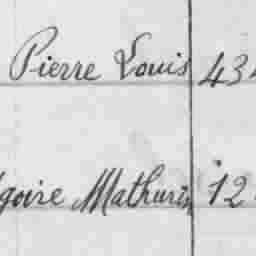 Pierre Louis 43
Mathurin 12